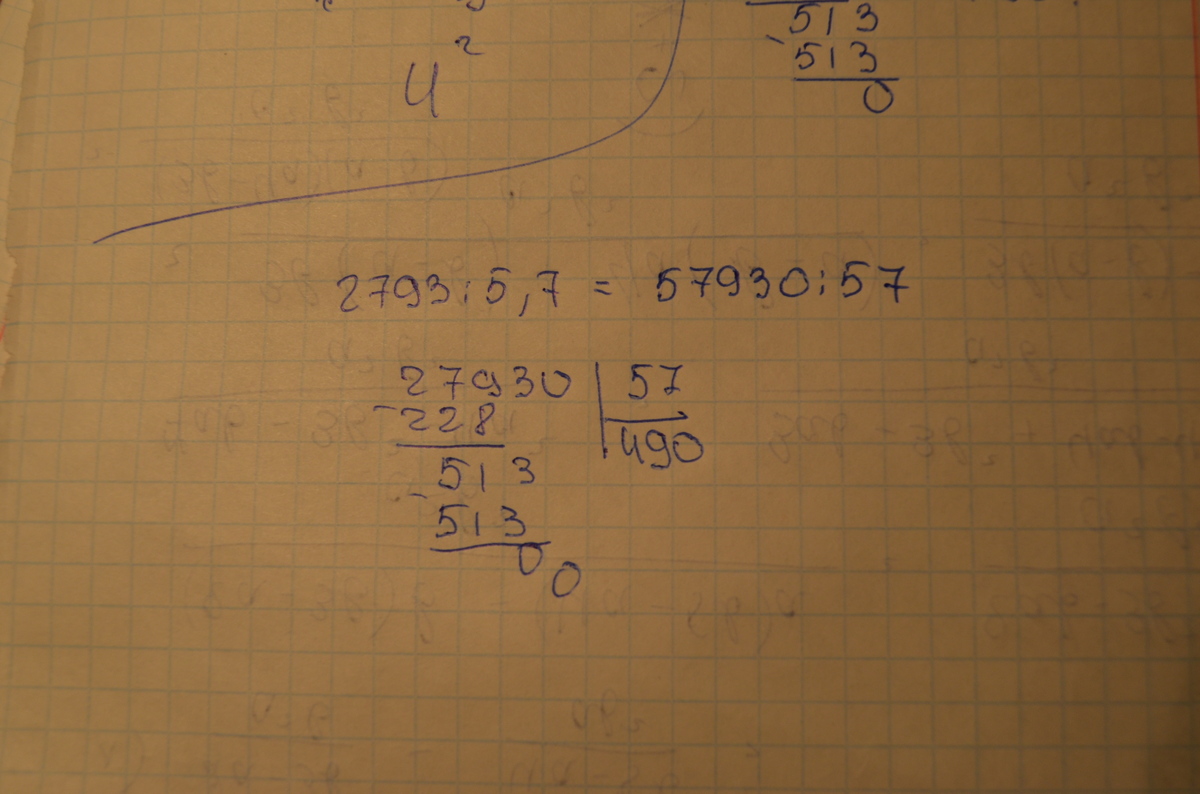 4²
513
- 513
0
2793:5,7 = 57930:57
27930 | 57
- 228 490
513
- 513
00